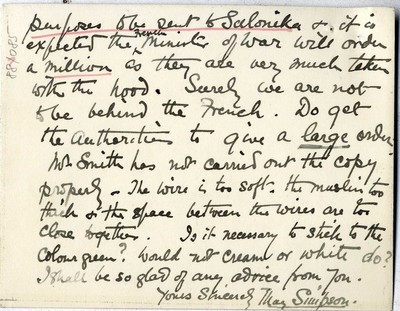 purposes to be sent to Salonika & it is
expected the French Minister of War will order
a million as they are very much taken
with the hood. Surely we are not
to be behind the French. Do get
the Authorities to give a large order.
Mr Smith has not carried out the copy
properly - The wire is too soft - the muslin too
thick & the space between the wires are too
close together. Is it necessary to stick to the
colour green? Would not cream or white do?
I shall be so glad of any advice from you.
Yours Sincerely May Simpson.